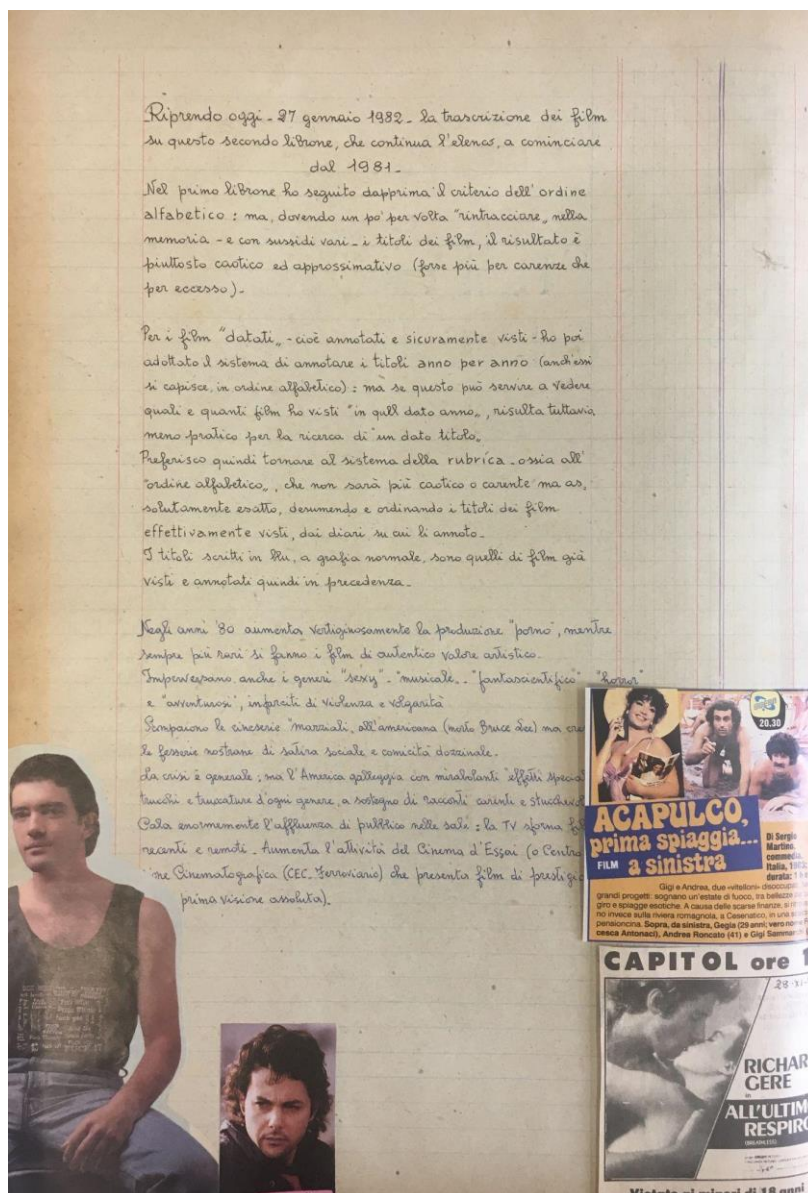 Riprendo oggi - 27 gennaio 1982 - la trascrizione dei film
su questo secondo librone, che continua l'elenco, a cominciare
dal 1981 -
Nel primo librone ho seguito dapprima il criterio dell'ordine
alfabetico : ma, dovendo un po' per volta "rintracciare„ nella
memoria - e con sussidi vari - i titoli dei film, il risultato è
piuttosto caotico ed approssimativo (forse più per carenze che
per eccesso) -
Per i film "datati„ - cioè annotati e sicuramente visti - ho poi
adottato il sistema di annotare i titoli anno per anno (anch'essi
si capisce, in ordine alfabetico) : ma se questo può servire a vedere
quali e quanti film ho visti "in quell dato anno„, risulta tuttavia,
meno pratico per la ricerca di un dato titolo.
Preferisco quindi tornare al sistema della rubrica - ossia all'
"ordine alfabetico„, che non sarà più caotico o carente ma as,
solutamente esatto, desumendo e ordinando i titoli dei film
effettivamente visti, dai diari su cui li annoto -
I titoli scritti in blu, a grafia normale, sono quelli di film già
visti e annotati quindi in precedenza -
Negli anni '80 aumenta vertiginosamente la produzione "porno", mentre
sempre più rari si fanno i film di autentico valore artistico -
Imperversano anche i generi "sexy" - "musicale" - "fantascientifico" - "horror"
e "avventurosi", infarciti di violenza e volgarità
Scompaiono le cineserie "marziali, all'americana (morto Bruce Lee) ma
le fesserie nostrane di satira sociale e comicità dozzinale.
La crisi è generale ; ma l'America galleggia con mirabolanti "effetti special
trucchi e truccature d'ogni genere, a sostegno di racconti carenti e
Cala enormemente l'affluenza di pubblico nelle sale : la TV sforna
recenti e remoti - Aumenta l'attività del Cinema d'Essai (o Centro
ne Cinematografica (CEC, Ferroviario) che presenta film di prestigio
prima visione assoluta).
20.30
ACAPULCO,
prima spiaggia...
FILM a sinistra
Di Sergio
Martino.
commedia,
Italia,
durata:
Gigi e Andrea, due «vitelloni» disoccupati
grandi progetti: sognano un'estate di fuoco, tra bellezze
giro e spiagge esotiche. A causa delle scarse finanze, si
no invece sulla riviera romagnola, a Cesenatico, in una
pensioncina. Sopra, da sinistra, Gegia (29 anni; vero nome
cesca Antonaci), Andrea Roncato (41) e Gigi Sammarchi
CAPITOL ore 1
RICHAR
GERE
in
ALL'ULTIM
RESPIRO
(BREATHLESS)
Vietato ai minori di 18 anni